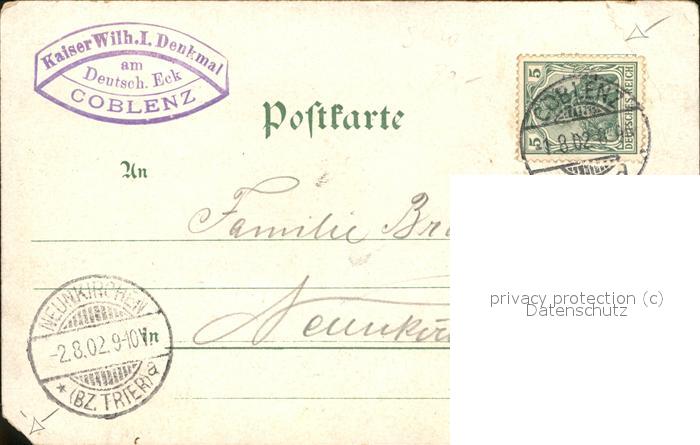 Kaiser Wilh. I. Denkmal
am
Deutsch. Eck
COBLENZ
5
5
DEUTSCHES REICH
COBLENZ
1.8.02.
Postkarte
An
Familie
privacy protection (c)
Datenschutz
NEUNKIRCHEN
-2.8.02.9-10V.
in
* (BZ.TRIER) a